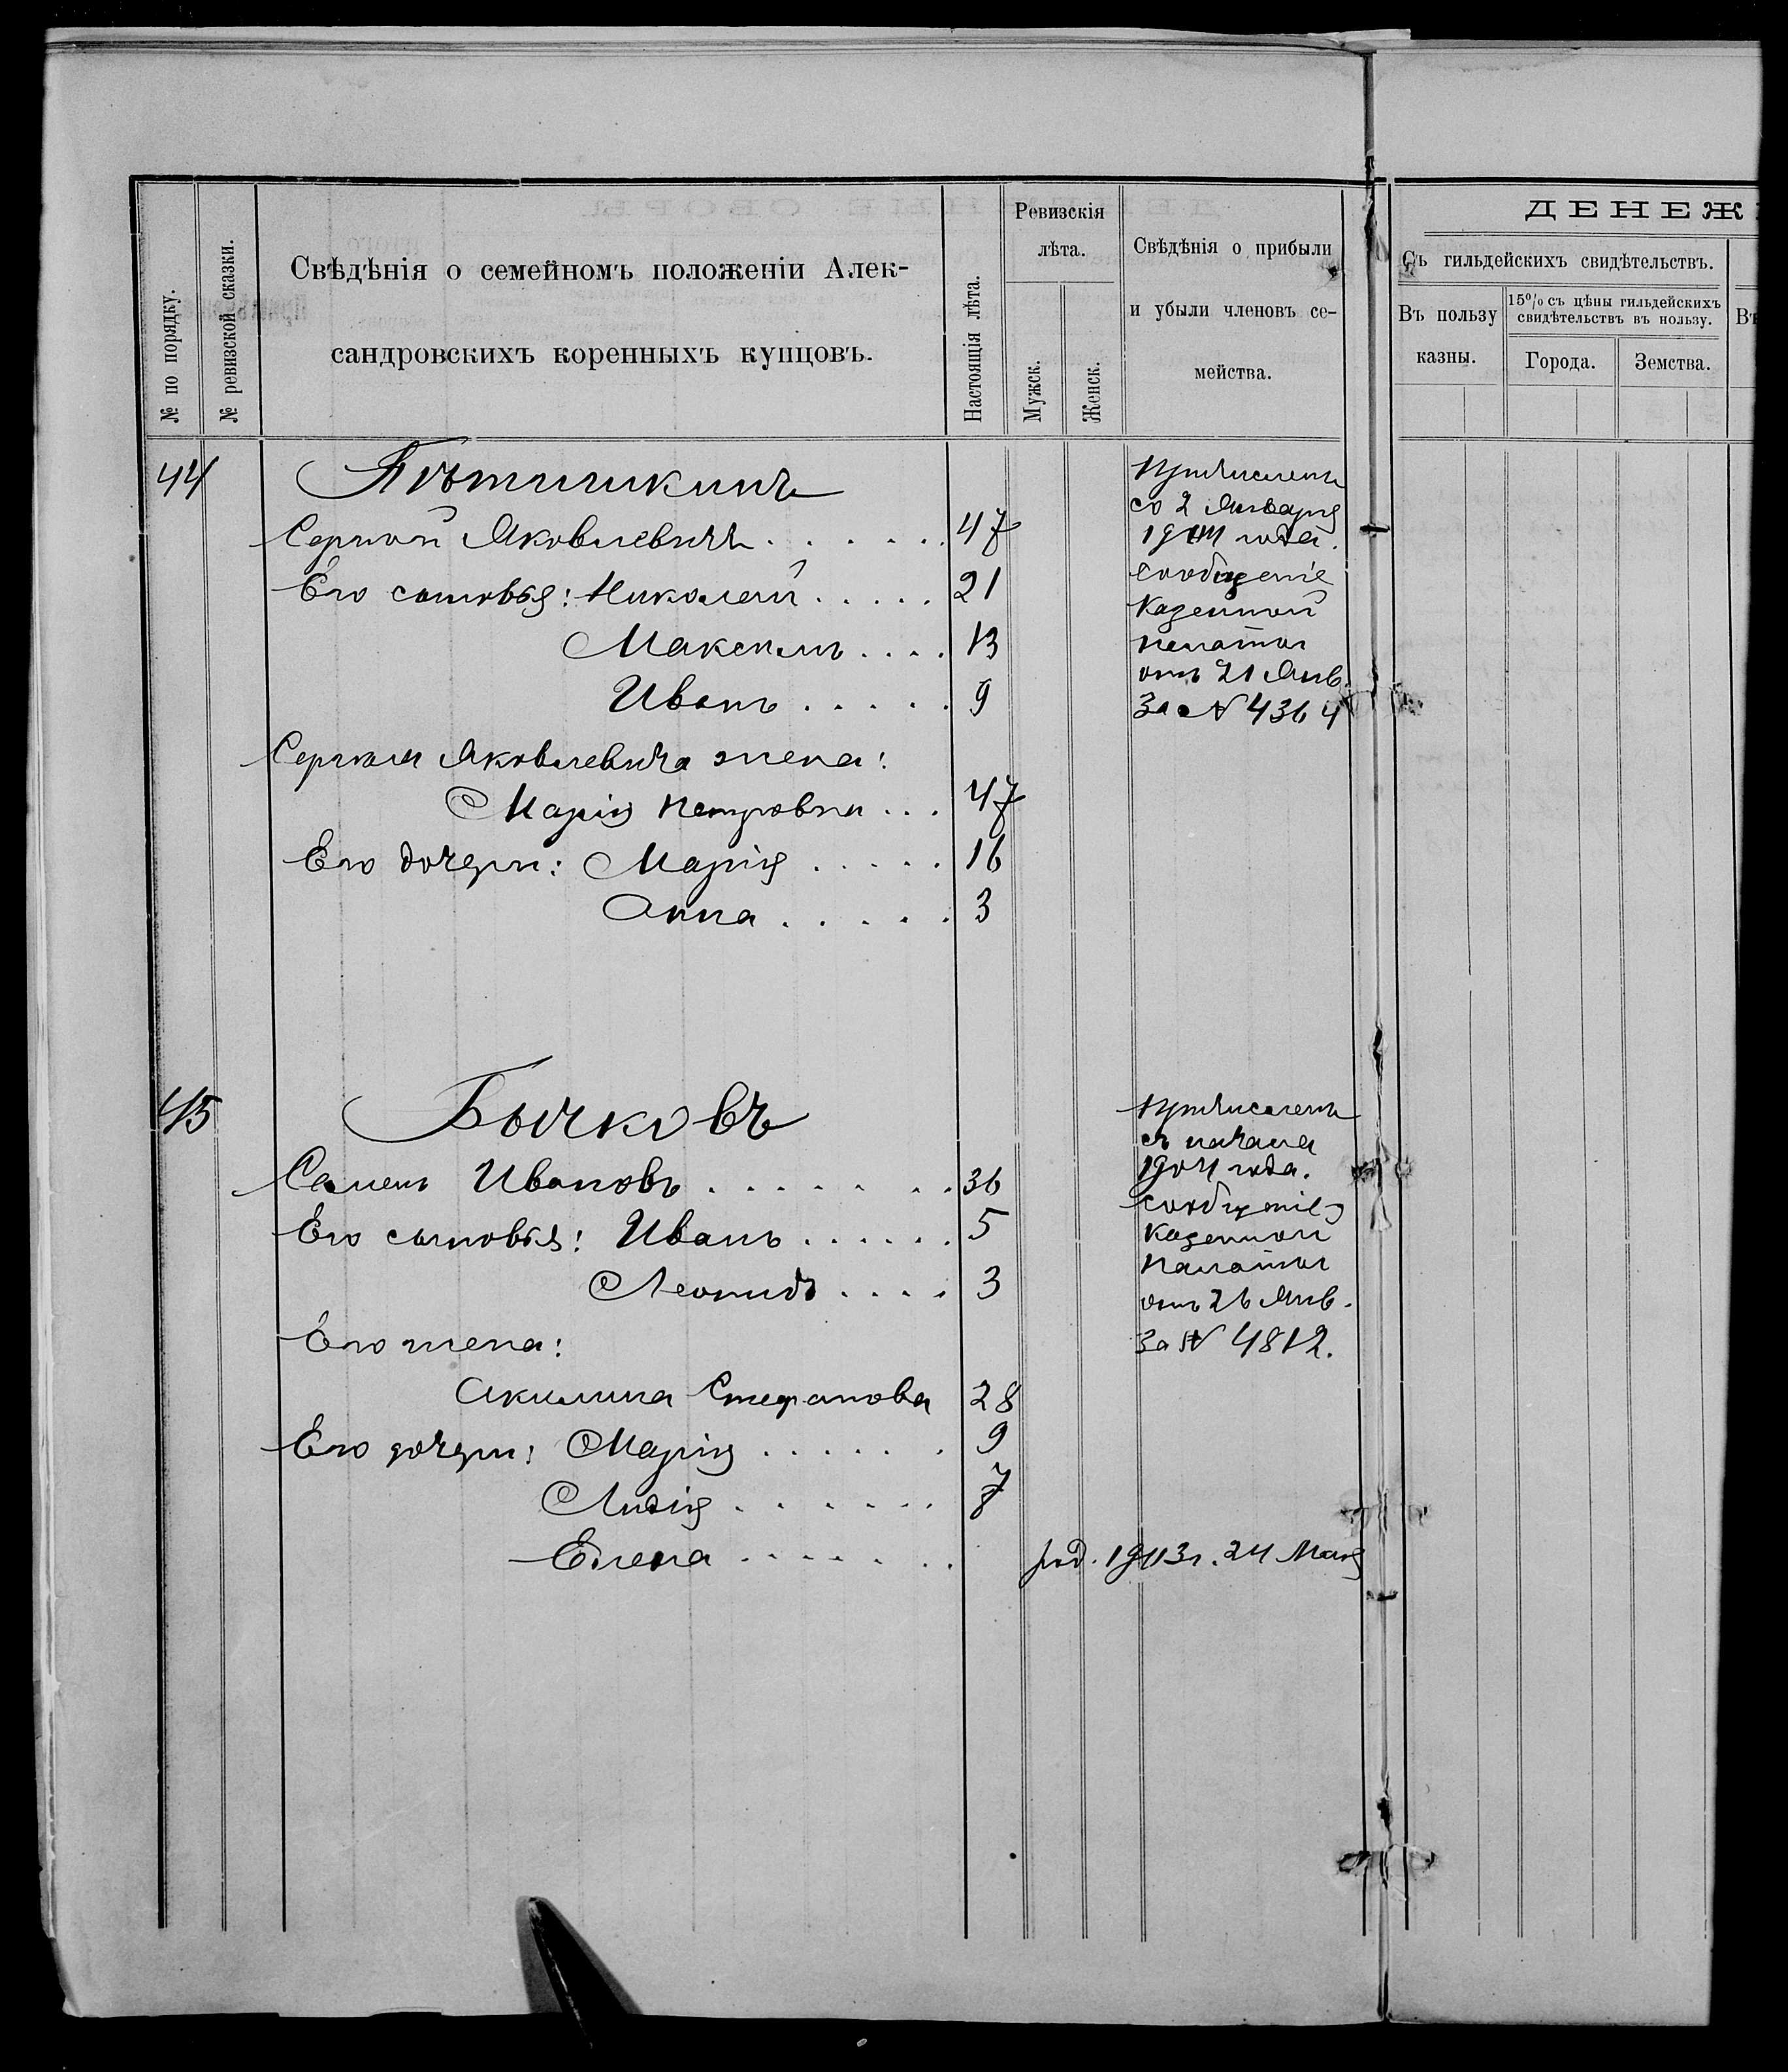 № по порядку.
№ ревизской сказки.
Свѣдѣнія о семейномъ положеніи Алек-
сандровскихъ коренныхъ купцовъ.
Настоящія лѣта.
Ревизскія
лѣта.
Мужск.
Женск.
Свѣдѣнія о прибыли
и убыли членовъ се-
мейства.
ДЕНЕЖ
Съ гильдейскихъ свидѣтельствъ.
Въ пользу
казны.
15% съ цѣны гильдейскихъ
свидѣтельствъ въ пользу.
Города.
Земства.
Въ
44
Сергѣй Яковлевичъ . . . . . . 47
Его сыновья: Николай . . . . . 21
Максимъ . . . . 13
Иванъ . . . . . 9
Сергѣя Яковлевича жена:
Марія Петровна . . . 47
Его дочери: Марія . . . . . 16
Анна . . . . . 3
Причисленъ
со 2 Января
1904 года.
сообщеніе
Казенной
палаты
отъ 21 Янв.
за № 4364
45 Бычковъ
Семенъ Ивановъ . . . . . . . 36
Его сыновья: Иванъ . . . . . . 5
Леонидъ . . . . 3
Его жена:
Акилина Стефанова 28
Его дочери: Марія . . . . . . 9
Лидія . . . . . . 7
Елена . . . . . . . род. 1903 г. 24 Мая
Причисленъ
съ начала
1904 года.
сообщеніе
Казенной
палаты
отъ 26 Янв.
за № 4812.